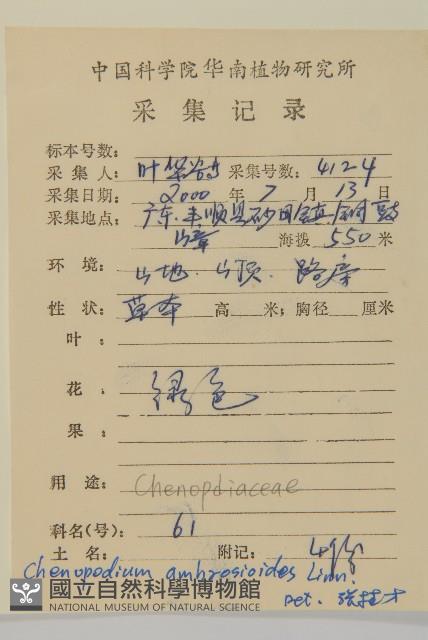 中国科学院华南植物研究所
采集记录
标本号数:
采集人: 叶华谷 采集号数: 4124
采集日期: 2000 年 7 月 13 日
采集地点: 广东.丰顺县砂田镇铜鼓
嶂 海拨 550 米
环境: 山地.山顶.路旁
性状: 草本 高 米; 胸径 厘米
叶:
花: 绿色
果:
用途: Chenopdiaceae
科名(号): 61
土名: 附记: 4份
Chenopodium ambrosioides Linn.
Det. 张桂才
國立自然科學博物館
NATIONAL MUSEUM OF NATURAL SCIENCE